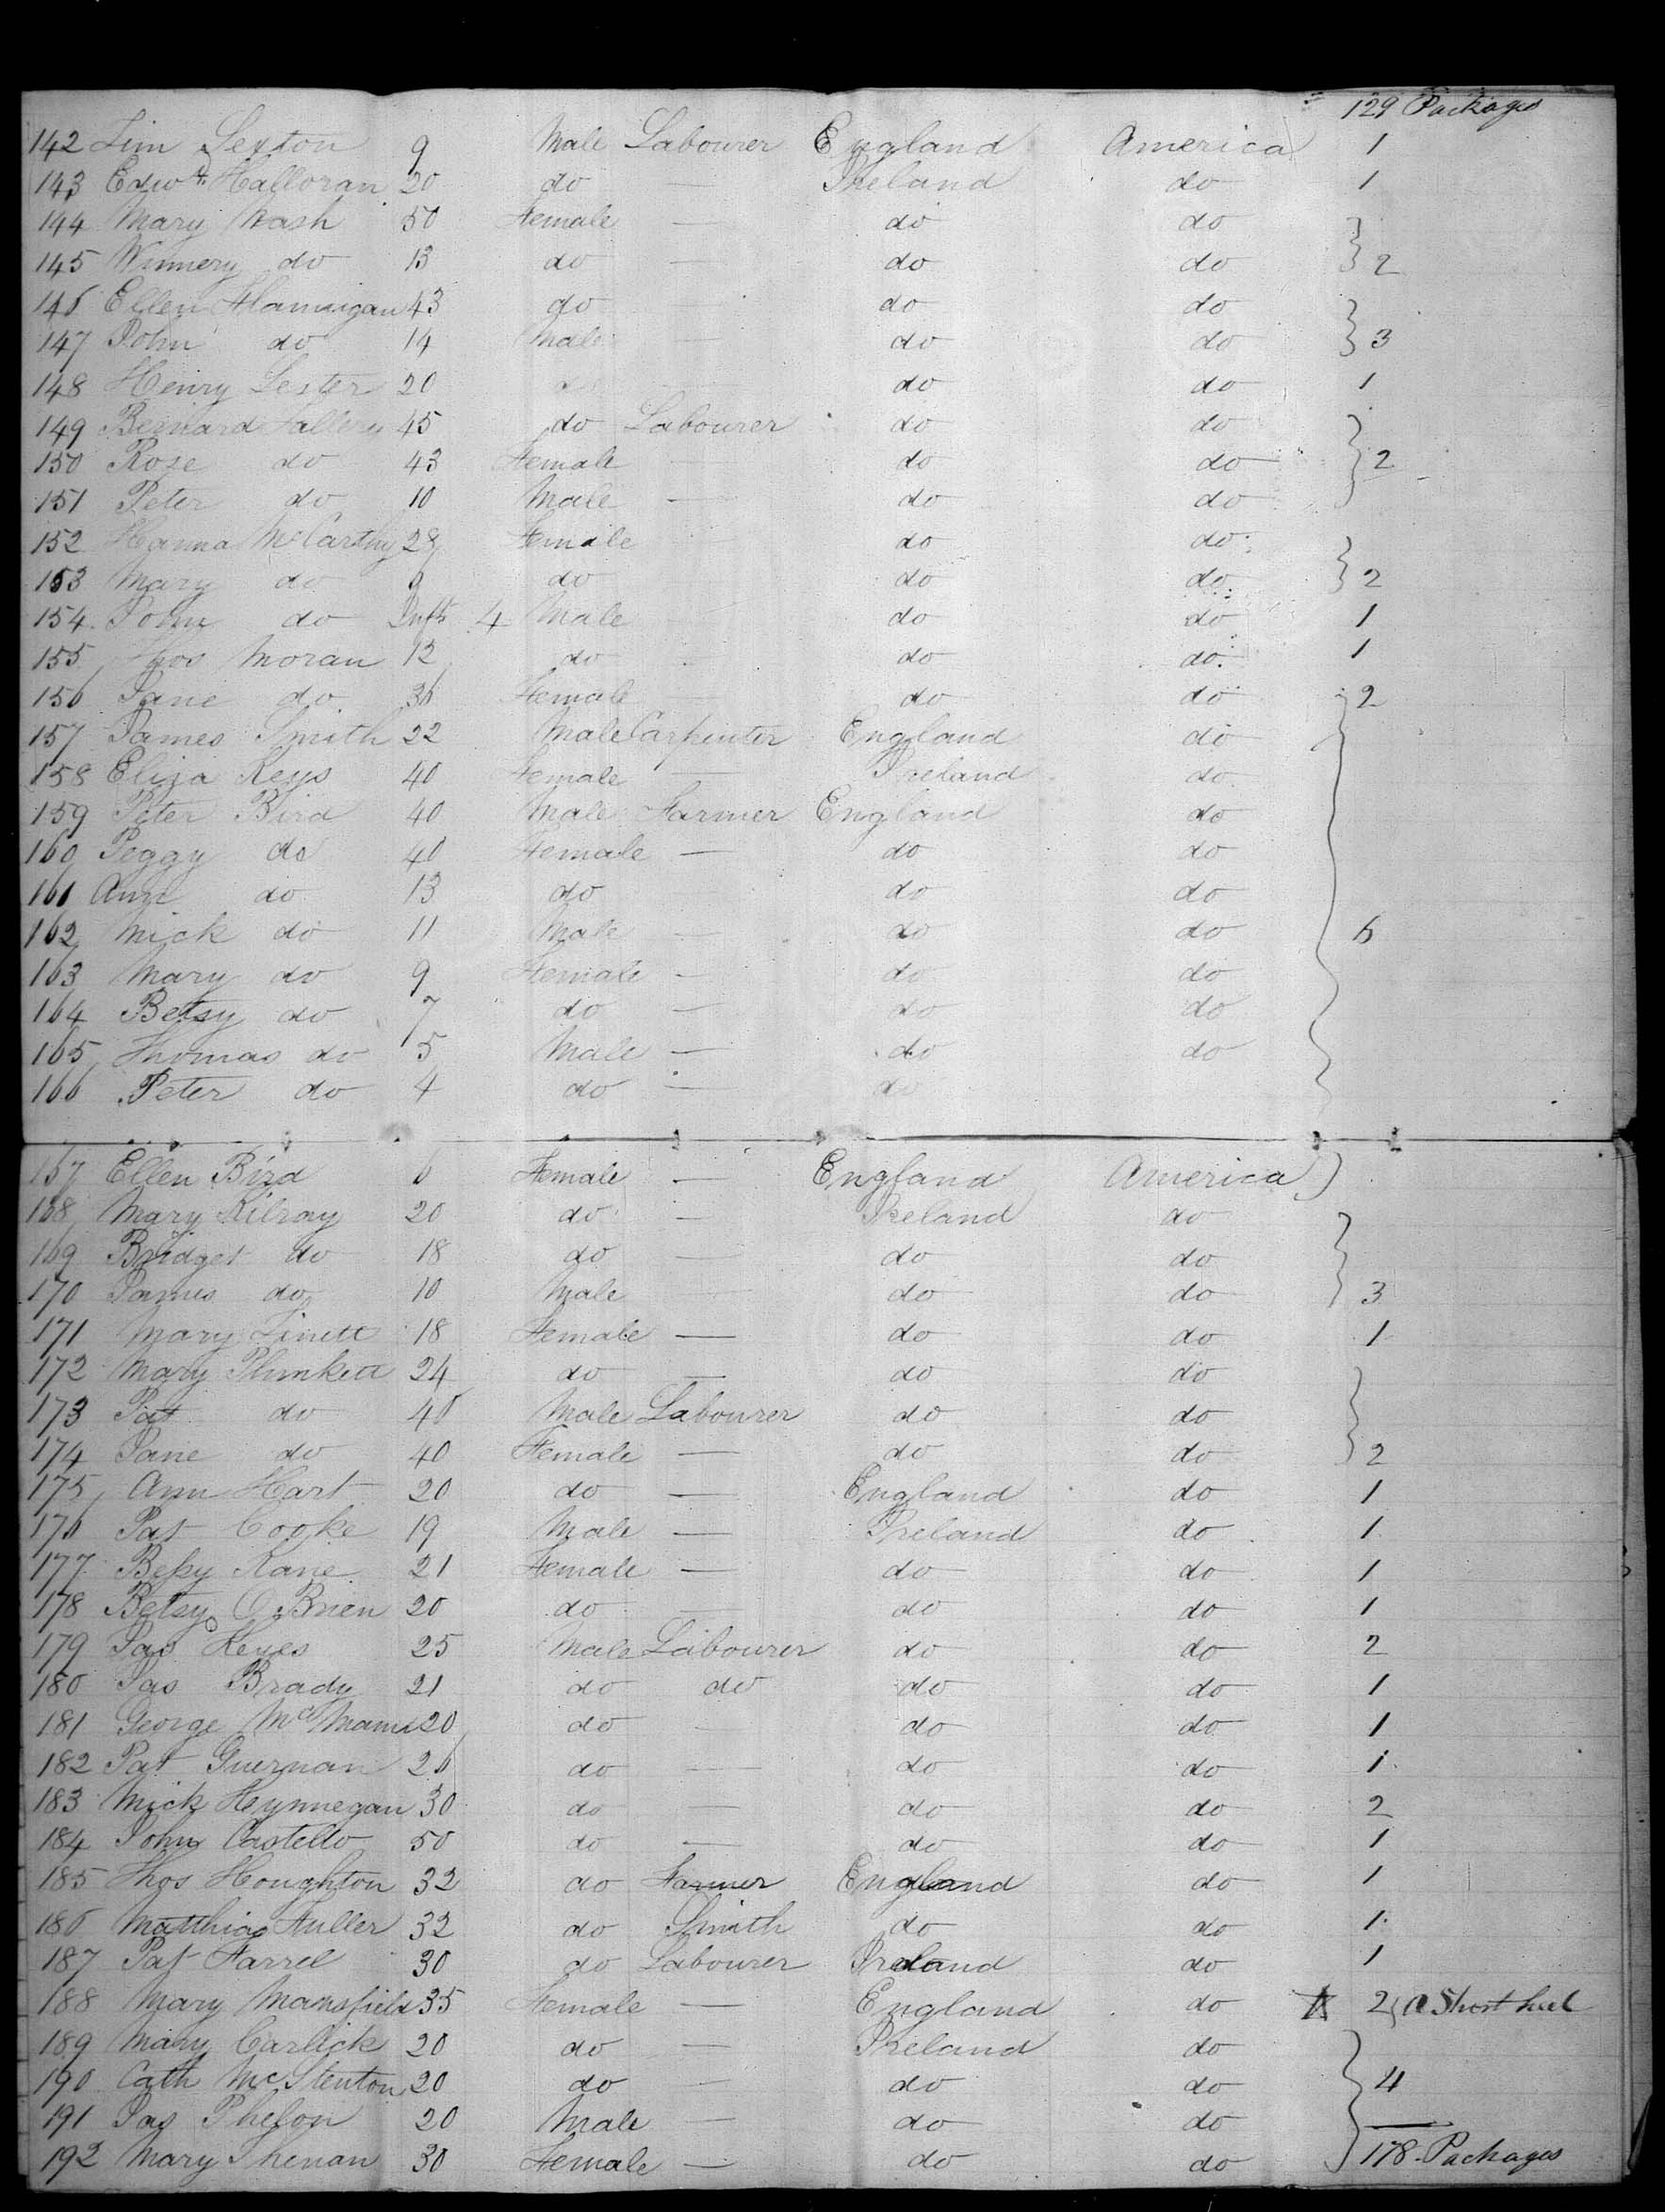 129 Packages
142 Sexton 9 Male Labourer England America 1
143 Edwd Halloran 20 do — Ireland do 1
144 Mary 50 Female — do do
145 Winnery do 13 do — do do 2
146 Ellen 43 do do do
147 John do 14 Male — do do 3
148 Henry Lester 20 do do 1
149 Bernard 45 do Labourer do do
150 Rose do 43 Female do do 2
151 Peter do 10 Male — do do
152 Hanna McCarthy 28 Female do do
153 Mary do 9 do do do 2
154 John do Inft 4 Male do do 1
155 Thos Moran 12 do do do 1
156 Jane do 36 Female — do do 2
157 James Smith 22 Male Carpenter England do
158 Eliza Keys 40 Female — Ireland do
159 Peter Bird 40 Male Farmer England do
160 Peggy do 40 Female — do do
161 Ann do 13 do do do
162 Mick do 11 Male — do do 6
163 Mary do 9 Female — do do
164 Betsy do 7 do — do do
165 Thomas do 5 Male — do do
166 Peter do 4 do — do
167 Ellen Bird 6 Female — England America
168 Mary Kilroy 20 do — Ireland do
169 Bridget do 18 do — do do
170 James do 10 Male — do do 3
171 Mary 18 Female — do do 1
172 Mary Plunkett 24 do — do do
173 Pat do 40 Male Labourer do do
174 Jane do 40 Female — do do 2
175 Ann Hart 20 do — England do 1
176 Pat Cooke 19 Male — Ireland do 1
177 Bessy Kane 21 Female — do do 1
178 Betsy O Brien 20 do — do do 1
179 Jas Keyes 25 Male Labourer do do 2
180 Jas Brady 21 do do do do 1
181 George 20 do — do do 1
182 Pat 26 do — do do 1
183 Mick Hynnegan 30 do — do do 2
184 John Costello 50 do — do do 1
185 Thos Houghton 32 do Farmer England do 1
186 Matthias 32 do Smith do do 1
187 Pat Farrel 30 do Labourer Ireland do 1
188 Mary Mansfield 35 Female — England do 2
189 Mary Carlick 20 do — Ireland do
190 Cath McStenton 20 do — do do 4
191 Jas Phelon 20 Male — do do
192 Mary 30 Female — do do 178 Packages